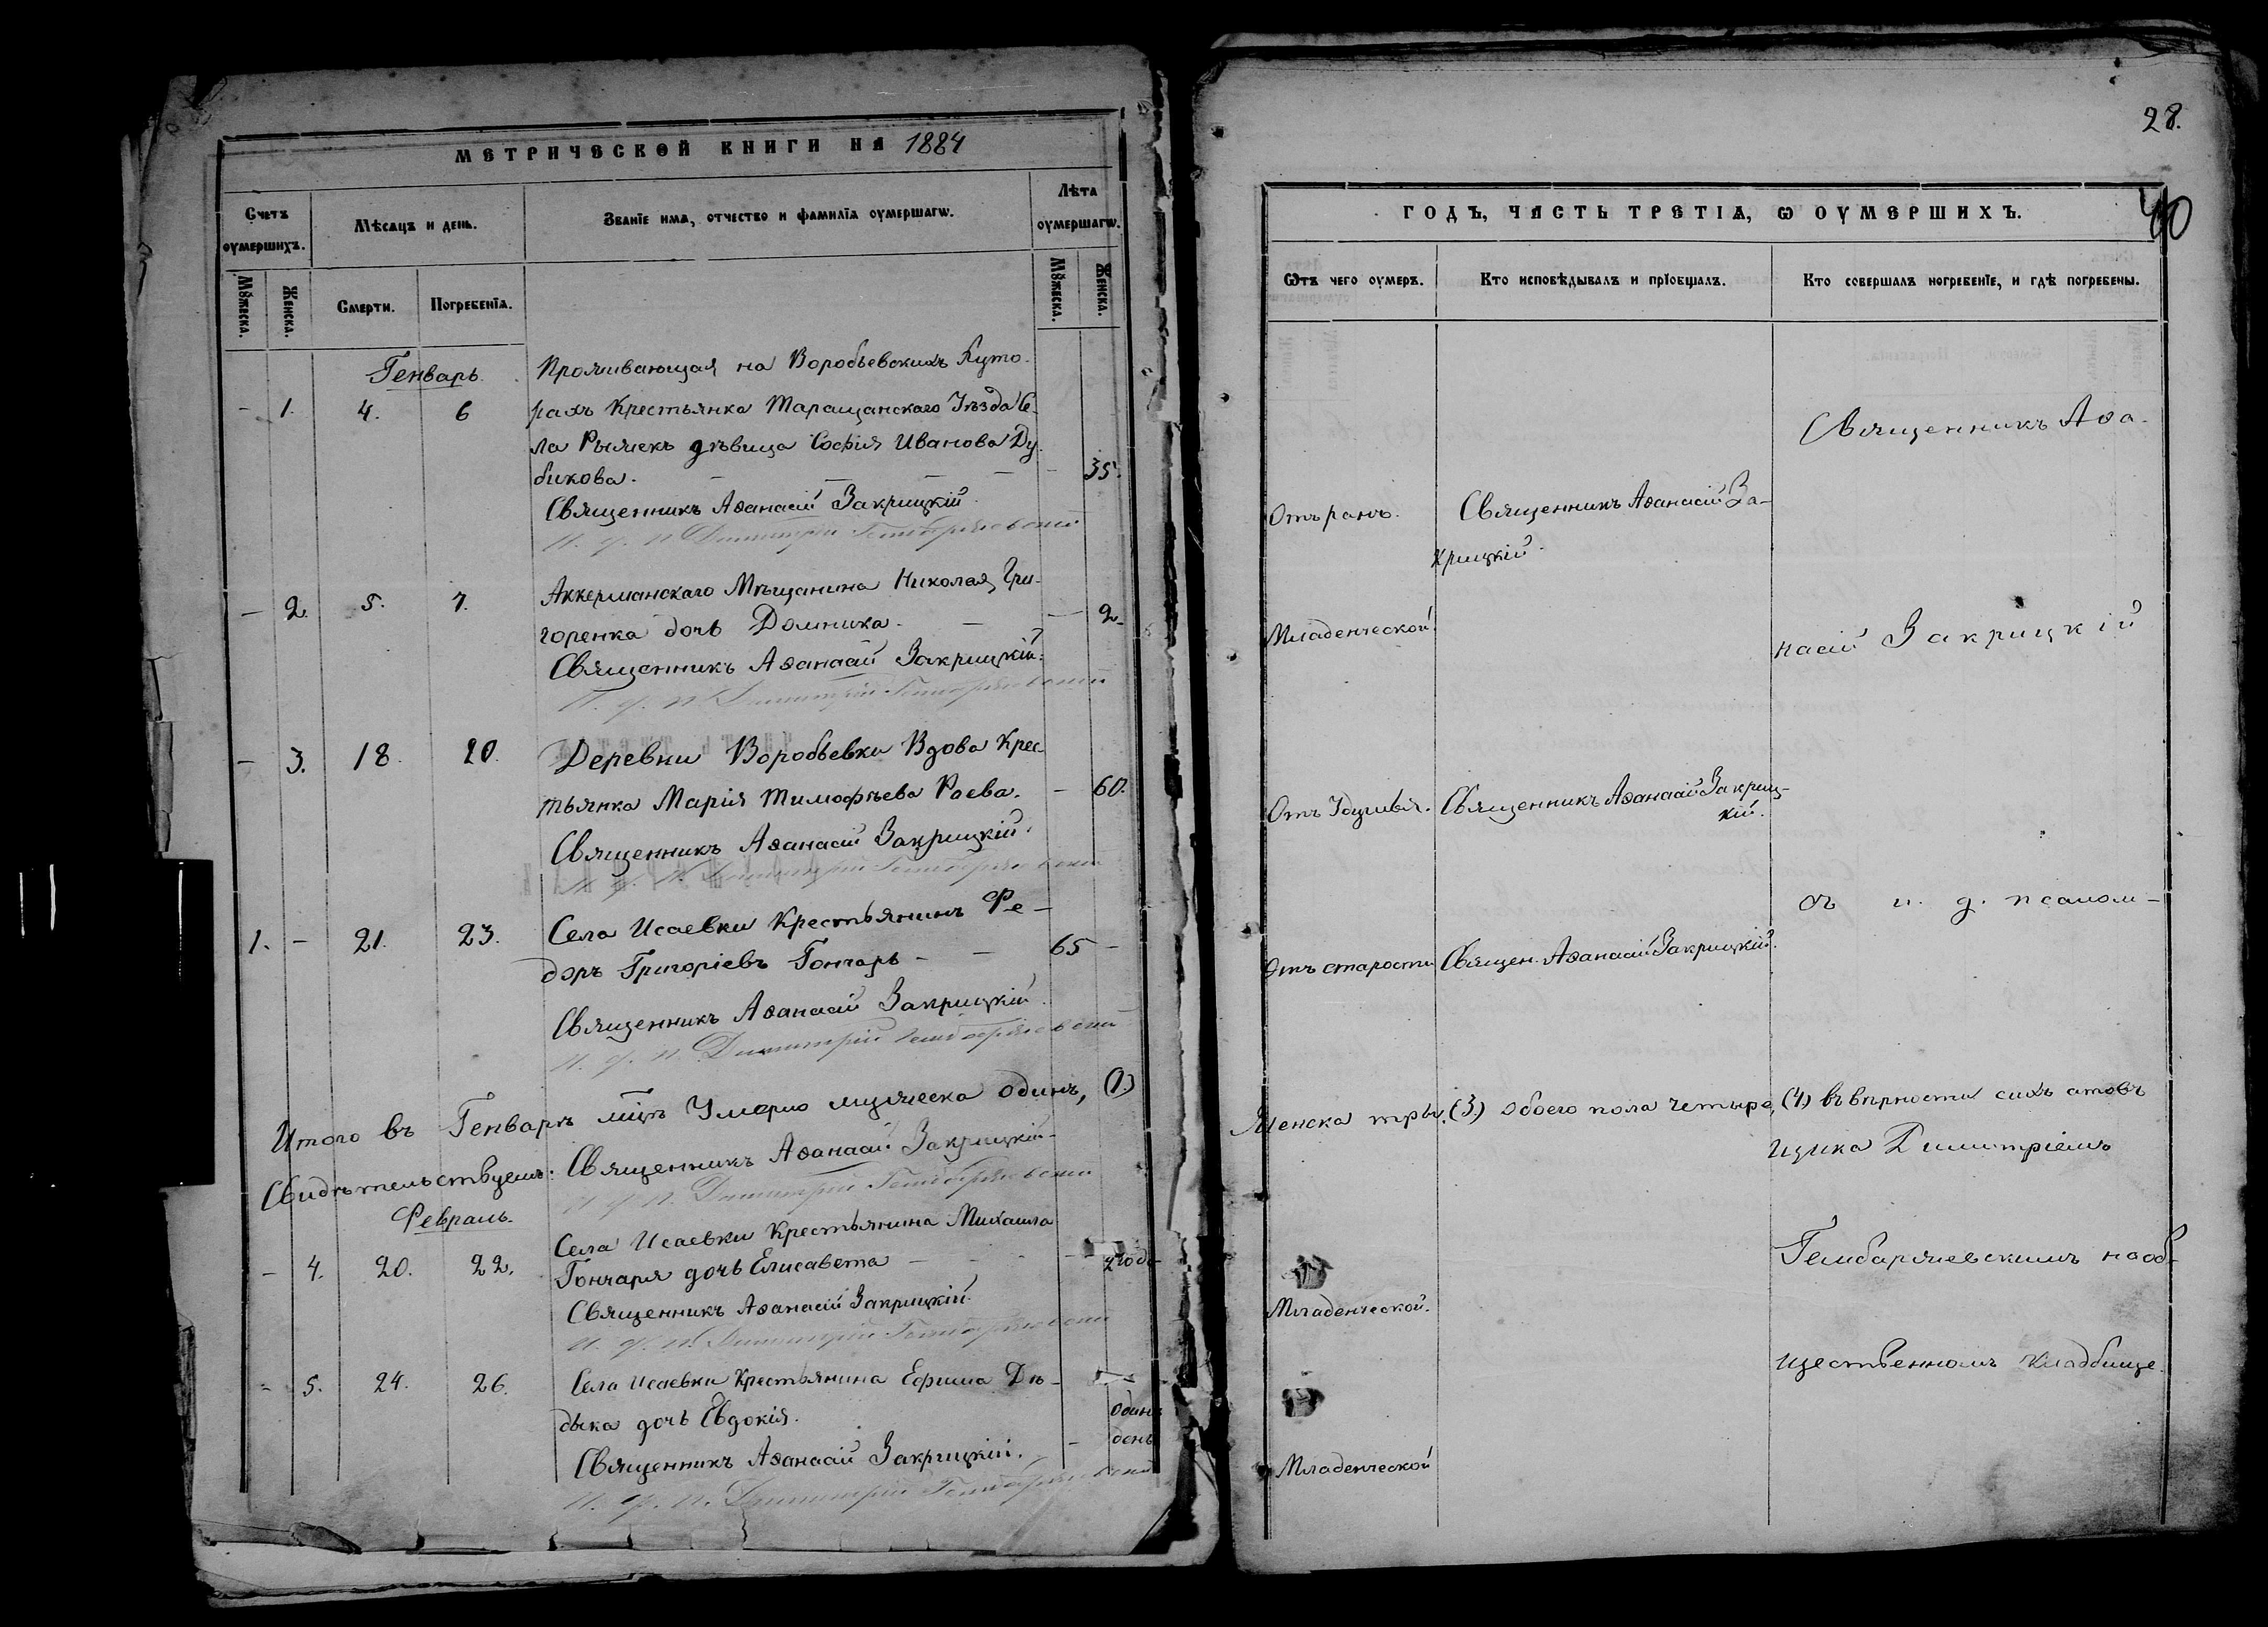 МЕТРИЧЕСКОЙ КНИГИ НА 1884
Счетъ оумершихъ.
Мѣсяцъ и день.
Званїе имя, отчество и фамилїя оумершагѡ.
Лѣта оумершагѡ.
Мꙋжеска.
Женска.
Смерти.
Погребенїя.
Мꙋжеска.
Женска.
Генварь.
Проживающая на Воробьевскихъ Хуто-
- 1. 4. 6 рахъ Крестьянка Таращанскаго Уѣзда Се-
ла Рыжекъ дѣвица Софія Иванова Ду-
бикова. - - - - 35.
Священникъ Аѳанасій Закрицкій.
И. д. п. Димитрій Гембаржевскій
- 2. 5. 7. Аккерманскаго Мѣщанина Николая Гри-
горенка дочь Домника. - - 2.
Священникъ Аѳанасій Закрицкій.
И. д. п. Димитрій Гембаржевскій
- 3. 18. 20. Деревки Воробьевки Вдова Крес-
тьянка Марія Тимофѣева Раева. - 60.
Священникъ Аѳанасій Закрицкій.
И. д. п. Димитрій Гембаржевскій
1. - 21. 23. Села Исаевки Крестьянинъ Ѳе-
доръ Григоріевъ Гончаръ - - 65 -
Священникъ Аѳанасій Закрицкій.
И. д. п. Димитрій Гембаржевскій
Итого въ Генварѣ мцѣ Умерло мужеска одинъ, (1.)
Свидѣтельствуемъ: Священникъ Аѳанасій Закрицкій.
И. д. п. Димитрій Гембаржевскій
Февраль.
- 4. 20. 22. Села Исаевки Крестьянина Михаила
Гончаря дочь Елисавета - - года
Священникъ Аѳанасій Закрицкій.
И. д. п. Димитрій Гембаржевскій
- 5. 24. 26. Села Исаевки Крестьянина Ефима Дѣ-
дыка дочь Евдокія. - одинъ день
Священникъ Аѳанасій Закрицкій.
И. д. п. Димитрій Гембаржевскій
28.
40
ГОДЪ, ЧАСТЬ ТРЕТІЯ, Ѡ ОУМЕРШИХЪ.
Ѿтъ чего оумеръ.
Кто исповѣдывалъ и прїобщалъ.
Кто совершалъ погребенїе, и гдѣ погребены.
Священникъ Аѳа-
Отъ ранъ. Священникъ Аѳанасій За-
крицкій.
Младенческой.
насій Закрицкій
Отъ Удушья. Священникъ Аѳанасій Закриц-
кій.
съ и. д. псалом-
Отъ старости Священ. Аѳанасій Закрицкій.
Женска три, (3.) Обоего пола четыре, (4.) въ вѣрности сихъ актовъ
щика Димитріемъ
Гембаржевскимъ на об-
Младенческой.
щественномъ кладбище.
Младенческой